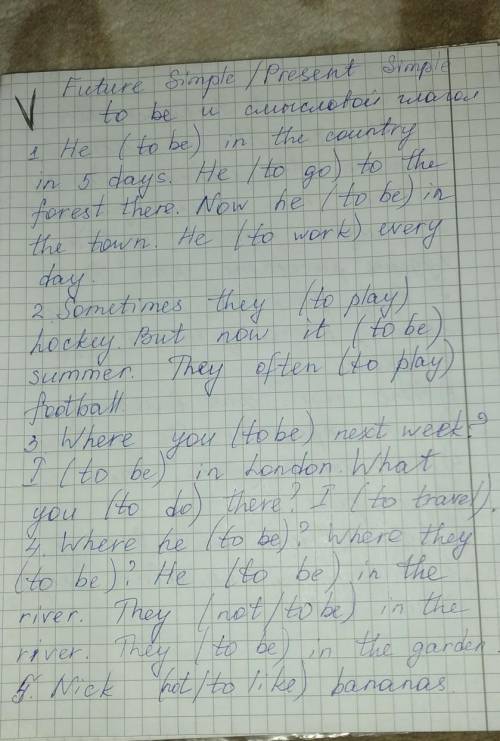 V Future Simple / Present Simple
to be и смысловой глагол
1 He (to be) in the country
in 5 days. He (to go) to the
forest there. Now he (to be) in
the town. He (to work) every
day.
2. Sometimes they (to play)
hockey. But now it (to be)
summer. They often (to play)
football
3 Where you (to be) next week?
I (to be) in London. What
you (to do) there? I (to travel).
4. Where he (to be)? Where they
(to be)? He (to be) in the
river. They (not/to be) in the
river. They (to be) in the garden.
5. Nick (not/to like) bananas